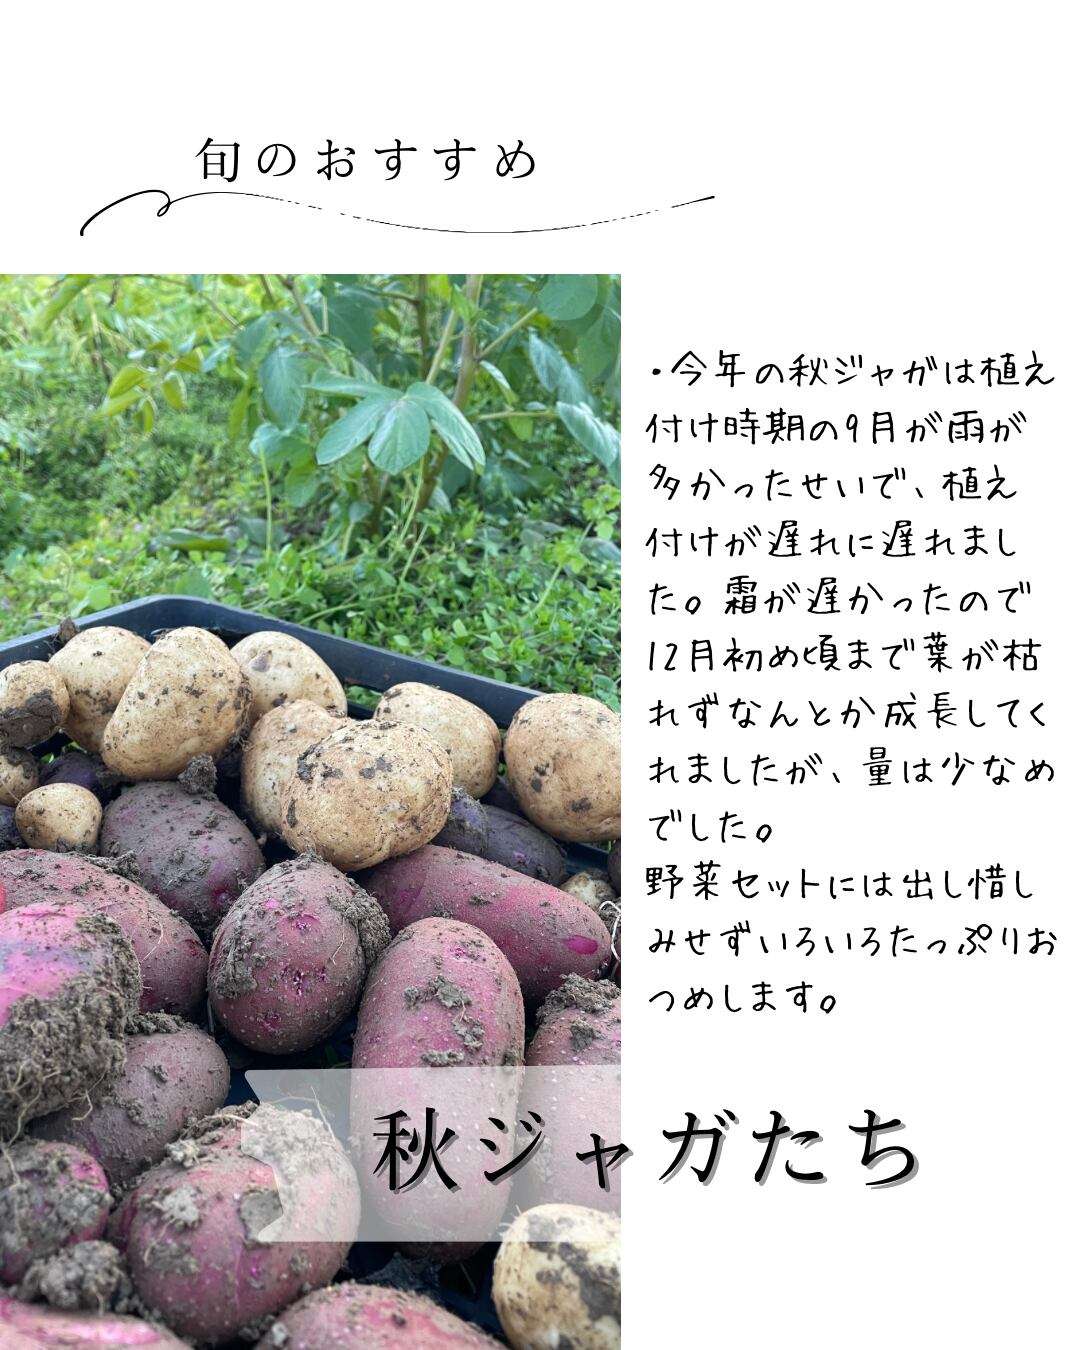 旬のおすすめ
・今年の秋ジャガは植え
付け時期の9月が雨が
多かったせいで、植え
付けが遅れに遅れまし
た。霜が遅かったので
12月初め頃まで葉が枯
れずなんとか成長してく
れましたが、量は少なめ
でした。
野菜セットには出し惜し
みせずいろいろたっぷりお
つめします。
秋ジャガたち